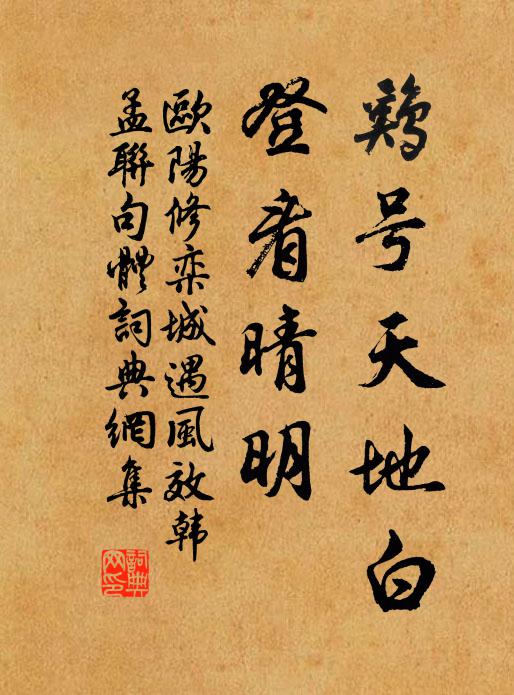 鷄号天地白
登看晴明
歐陽修栾城遇風效韩
孟聯句體詞典網集
詞典网印